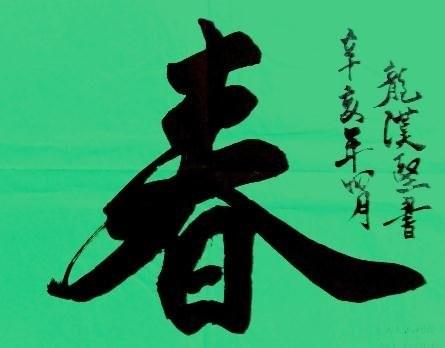 春
龍漢堅書
辛亥年四月